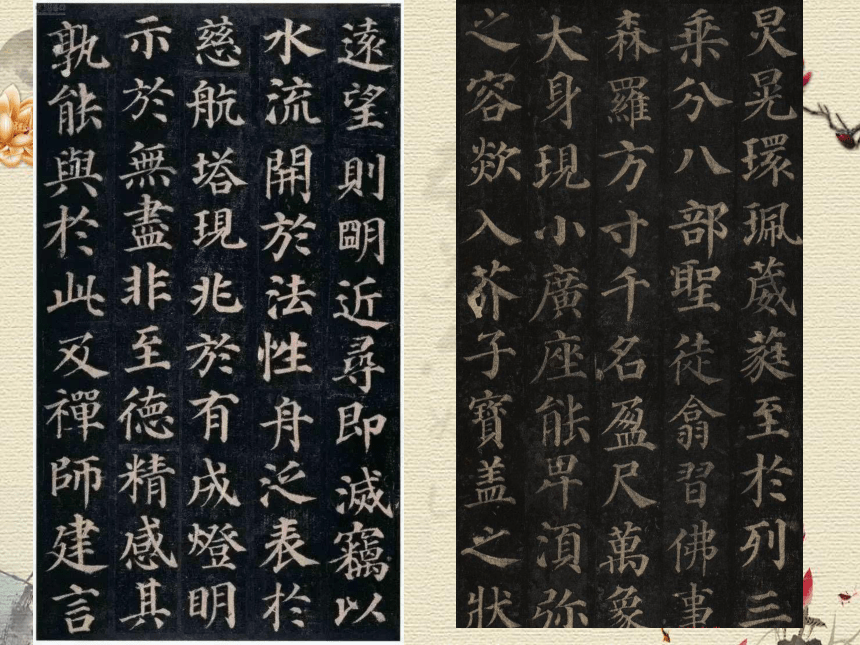 遠望則朙近尋即滅竊以
水流開於法性舟泛表於
慈航塔現兆於有成燈明
示於無盡非至徳精感其
孰能與於此及禪師建言
炅晃環珮葳蕤至於列三
乘分八部聖徒翕習佛事
森羅方寸千名盈尺萬象
大身現小廣座能卑湏弥
之容欻入芥子寶盖之狀